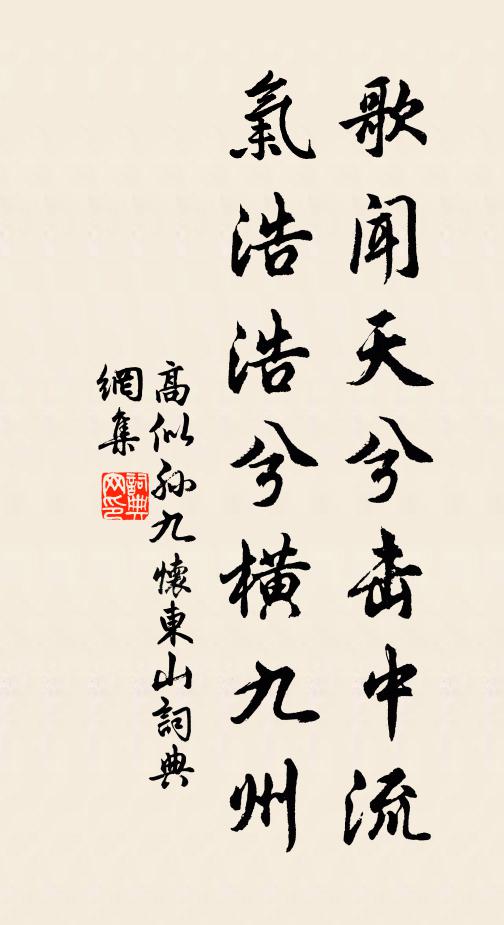 歌闻天兮击中流
氣浩浩兮橫九州
高似孙九懷東山詞典
網集
詞典网印